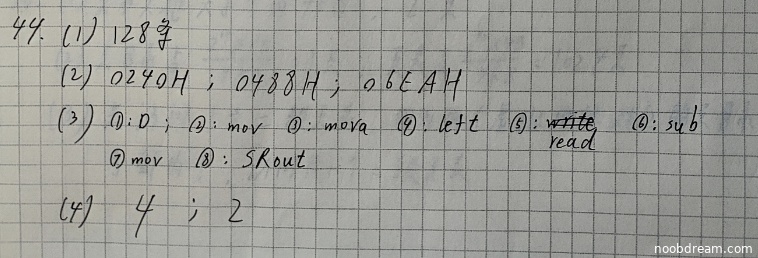 44. (1) 128字
(2) 0240H ; 0488H ; 06EAH
(3) ①:0 ; ②: mov ③: mova ④: left ⑤: write read ⑥: sub
⑦ mov ⑧: SRout
(4) 4 ; 2
noobdream.com